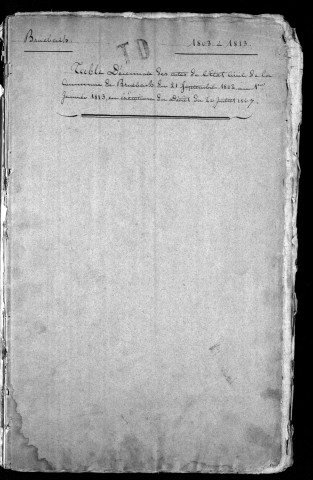 TD
1802 à 1813.
Table Décennale des actes de l'Etat civil de la
Commune de du 21 Septembre 1802 au 1er
Janvier 1813, en exécution du Décret du 20 Juillet 1807.